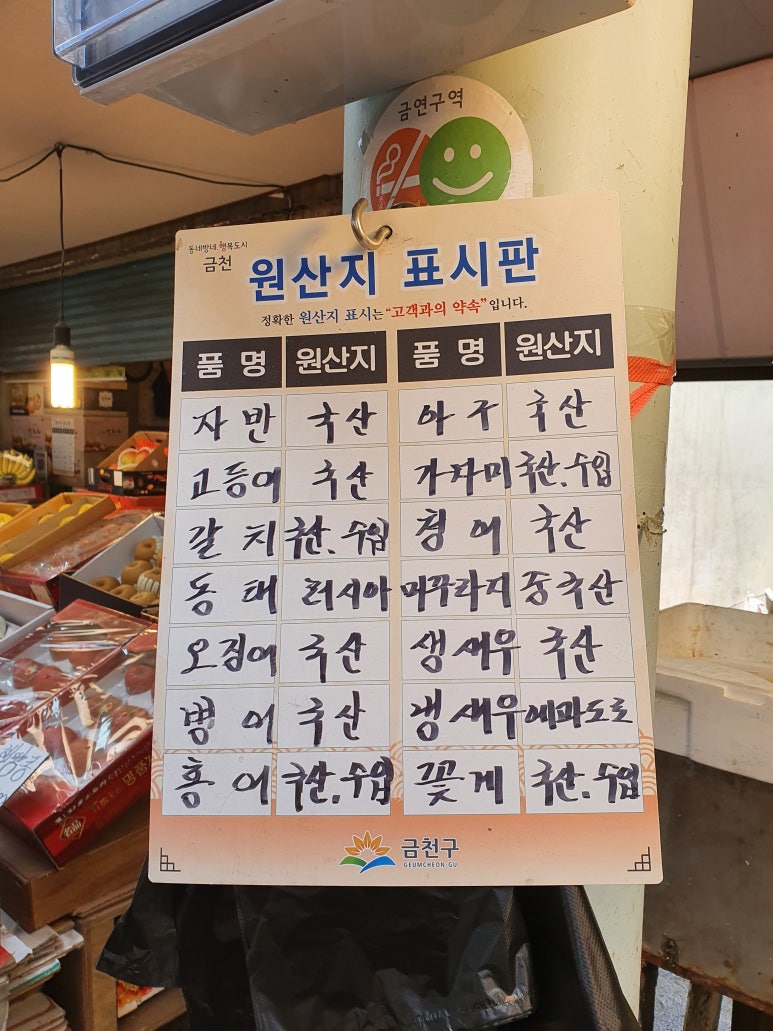 금연구역
동네방네 행복도시
금천
원산지 표시판
정확한 원산지 표시는 "고객과의 약속" 입니다.
품 명 원산지 품 명 원산지
자반 국산 아구 국산
고등어 국산 가자미 국산.수입
갈치 국산.수입 청어 국산
동태 러시아 미꾸라지 중국산
오징어 국산 생새우 국산
병어 국산 냉새우 에콰도르
홍어 국산.수입 꽃게 국산.수입
금천구
GEUMCHEON-GU